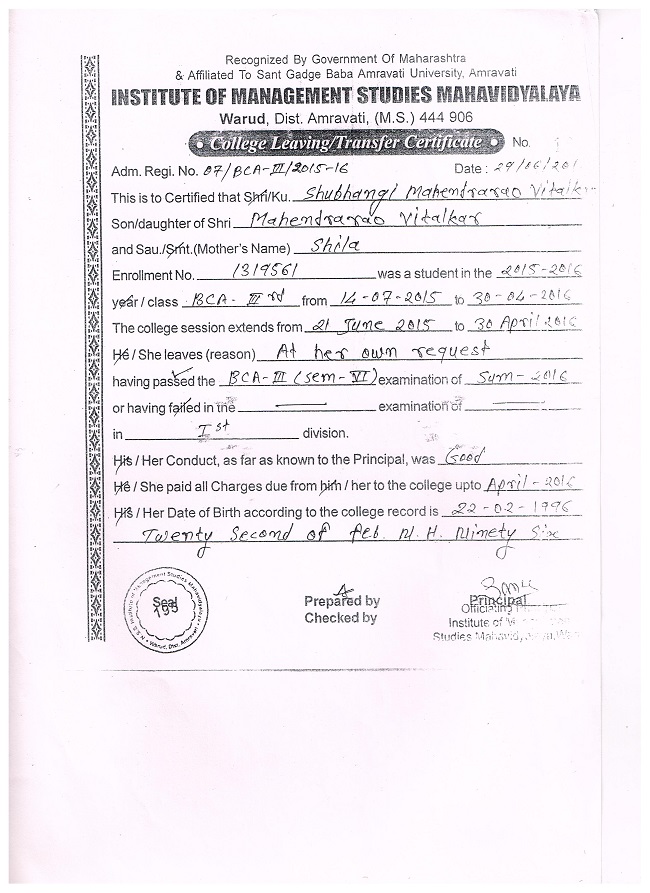 Recognized By Government Of Maharashtra
& Affiliated To Sant Gadge Baba Amravati University, Amravati
INSTITUTE OF MANAGEMENT STUDIES MAHAVIDYALAYA
Warud, Dist. Amravati, (M.S.) 444 906
• College Leaving/Transfer Certificate • No.
Adm. Regi. No. 07/BCA-III/2015-16 Date : 29/06/201
This is to Certified that Shri/Ku. Shubhangi Mahendrarao Vitalkar
Son/daughter of Shri Mahendrarao Vitalkar
and Sau./Smt.(Mother's Name) Shila
Enrollment No. 1319561 was a student in the 2015-2016
year / class BCA- III rd from 14-07-2015 to 30-04-2016
The college session extends from 21 June 2015 to 30 April 2016
He / She leaves (reason) At her own request
having passed the BCA-III (sem-VI) examination of Sum-2016
or having failed in the ——— examination of ———
in Ist division.
His / Her Conduct, as far as known to the Principal, was Good
He / She paid all Charges due from him / her to the college upto April-2016
His / Her Date of Birth according to the college record is 22-02-1996
Twenty Second of feb. N. H. Ninety Six
Seal
195
Prepared by
Checked by
Principal
Officiating
Institute of
Studies